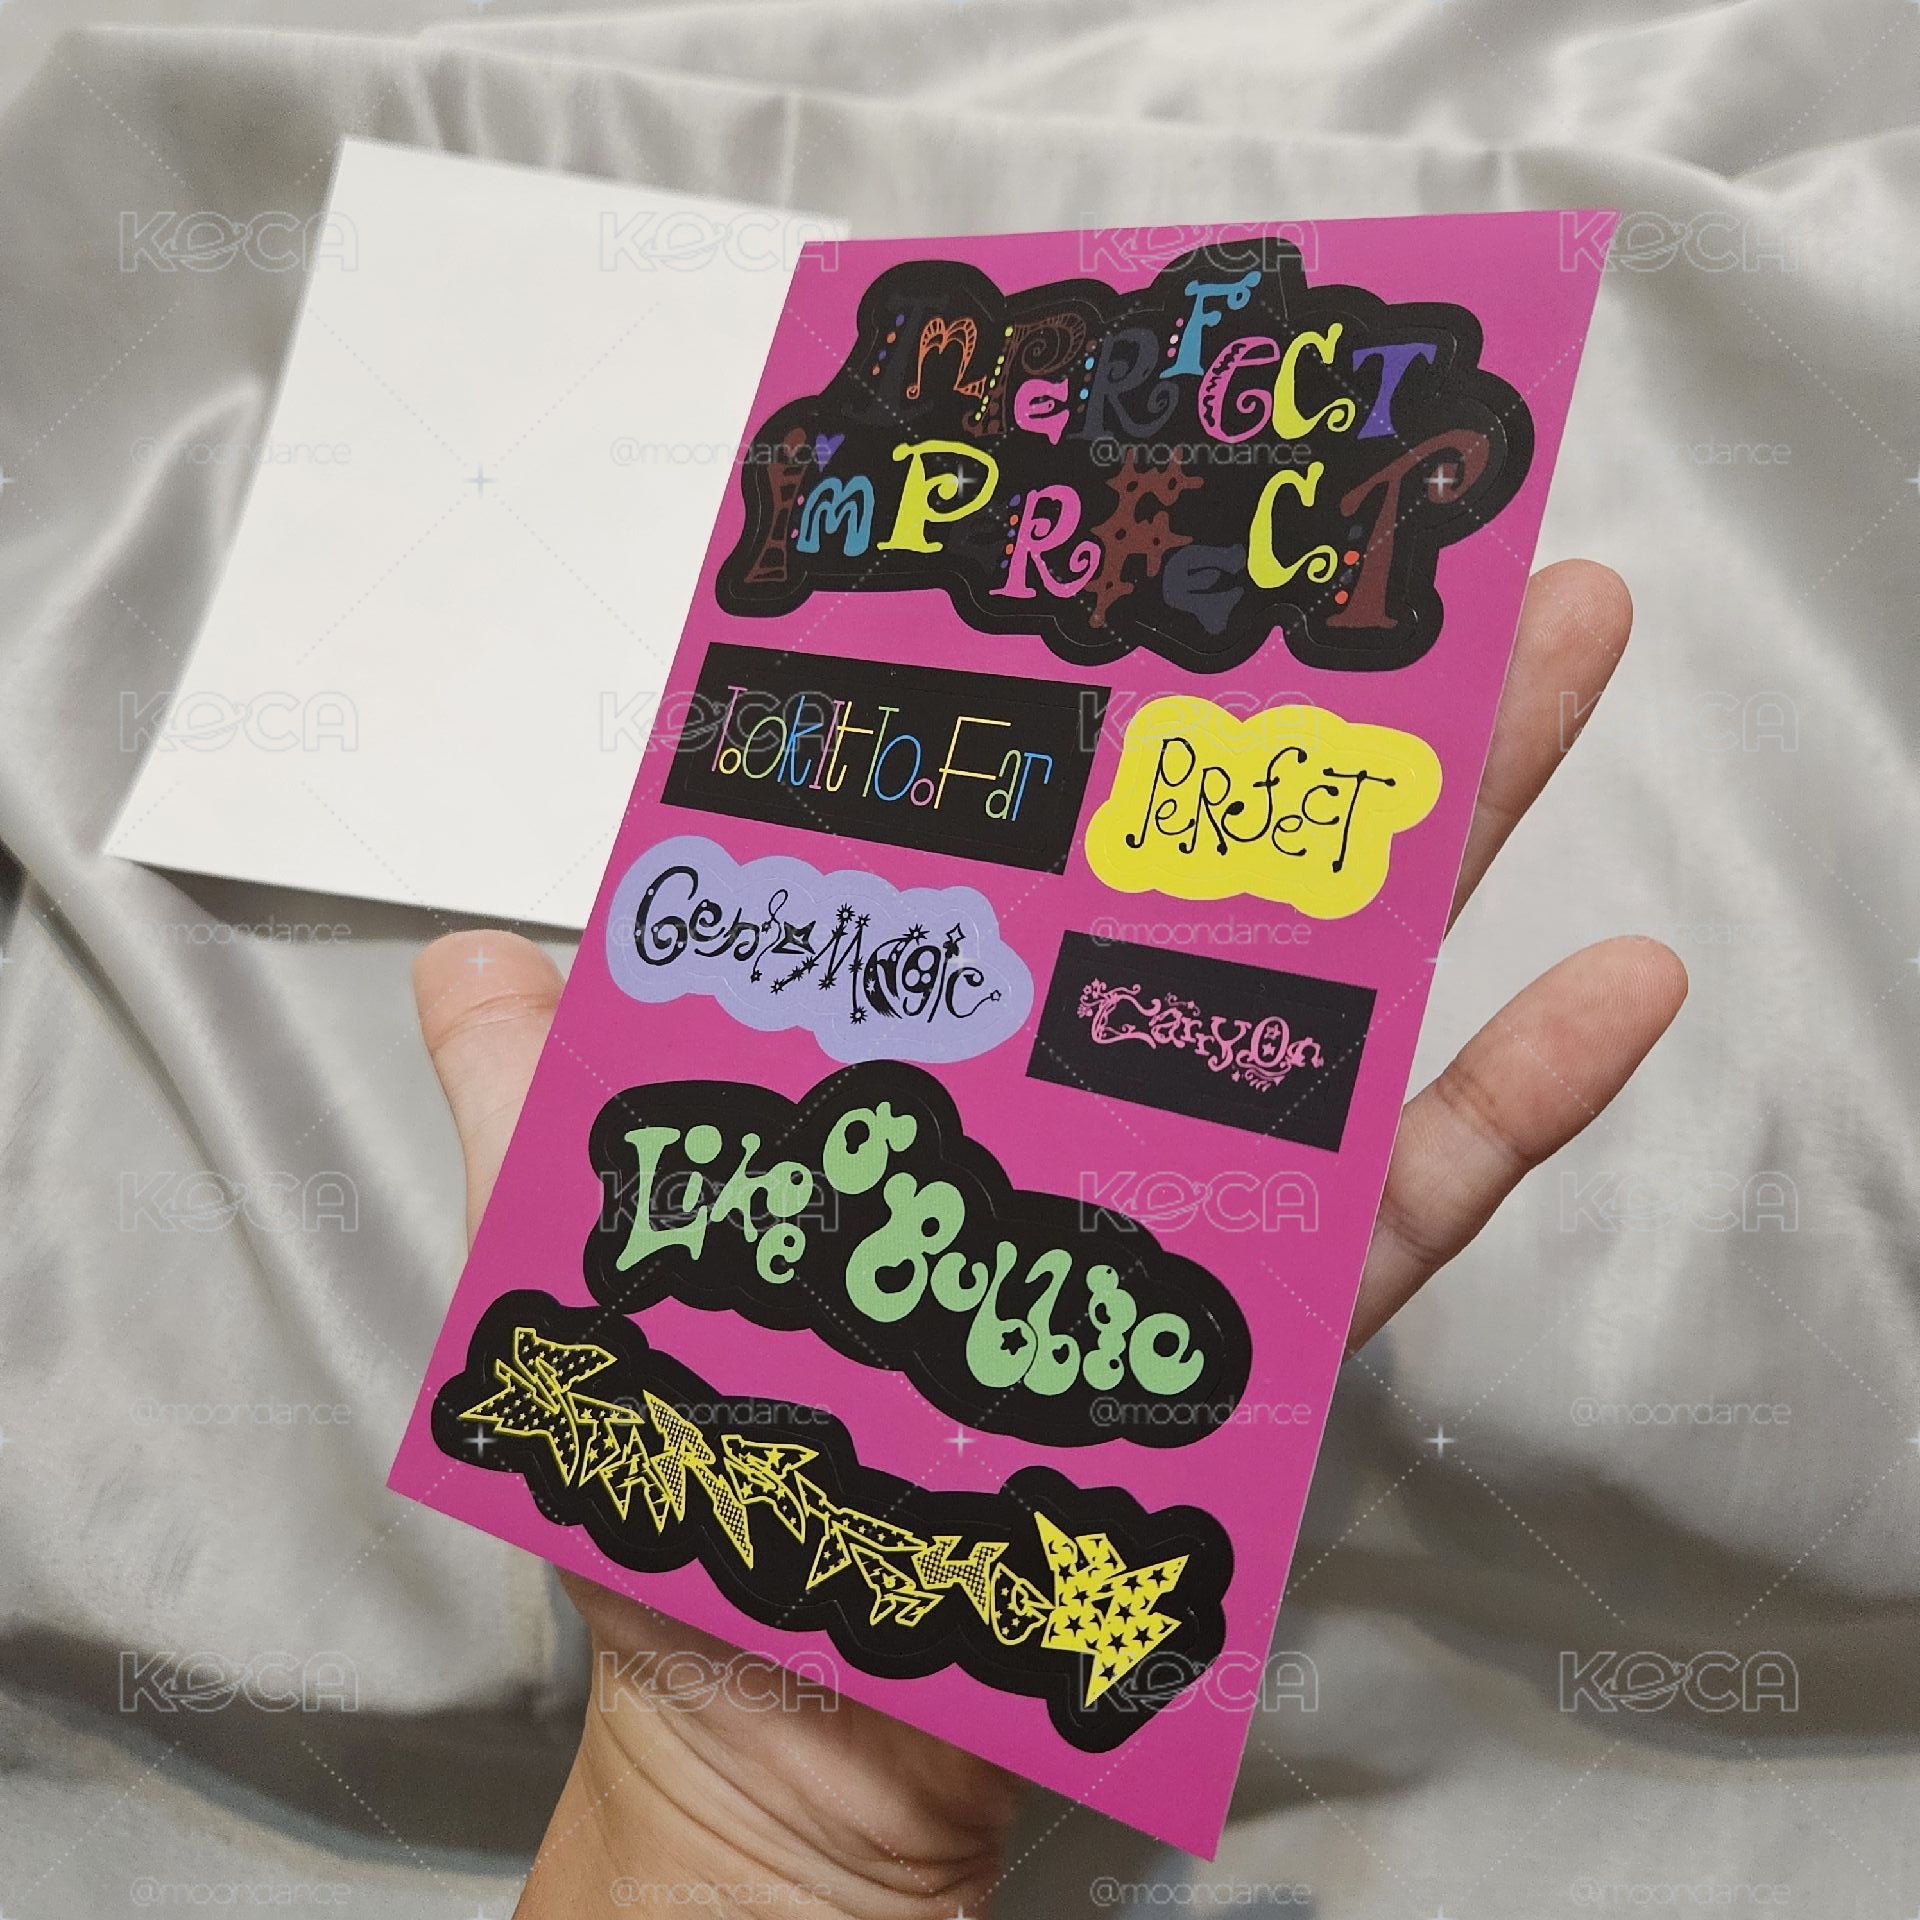 KOCA KOCA KOCA KOCA
IMPeRFeCT
I'mPeRFeCT
@moondance @moondance @moondance @moondance
TookItTooFar
PeRfecT
KOCA KOCA KOCA KOCA
Magic
CarryOn
@moondance @moondance @moondance @moondance
Like a Bubble
KOCA KOCA KOCA KOCA
STARSTRUCK
@moondance @moondance @moondance @moondance
KOCA KOCA KOCA KOCA
@moondance @moondance @moondance @moondance